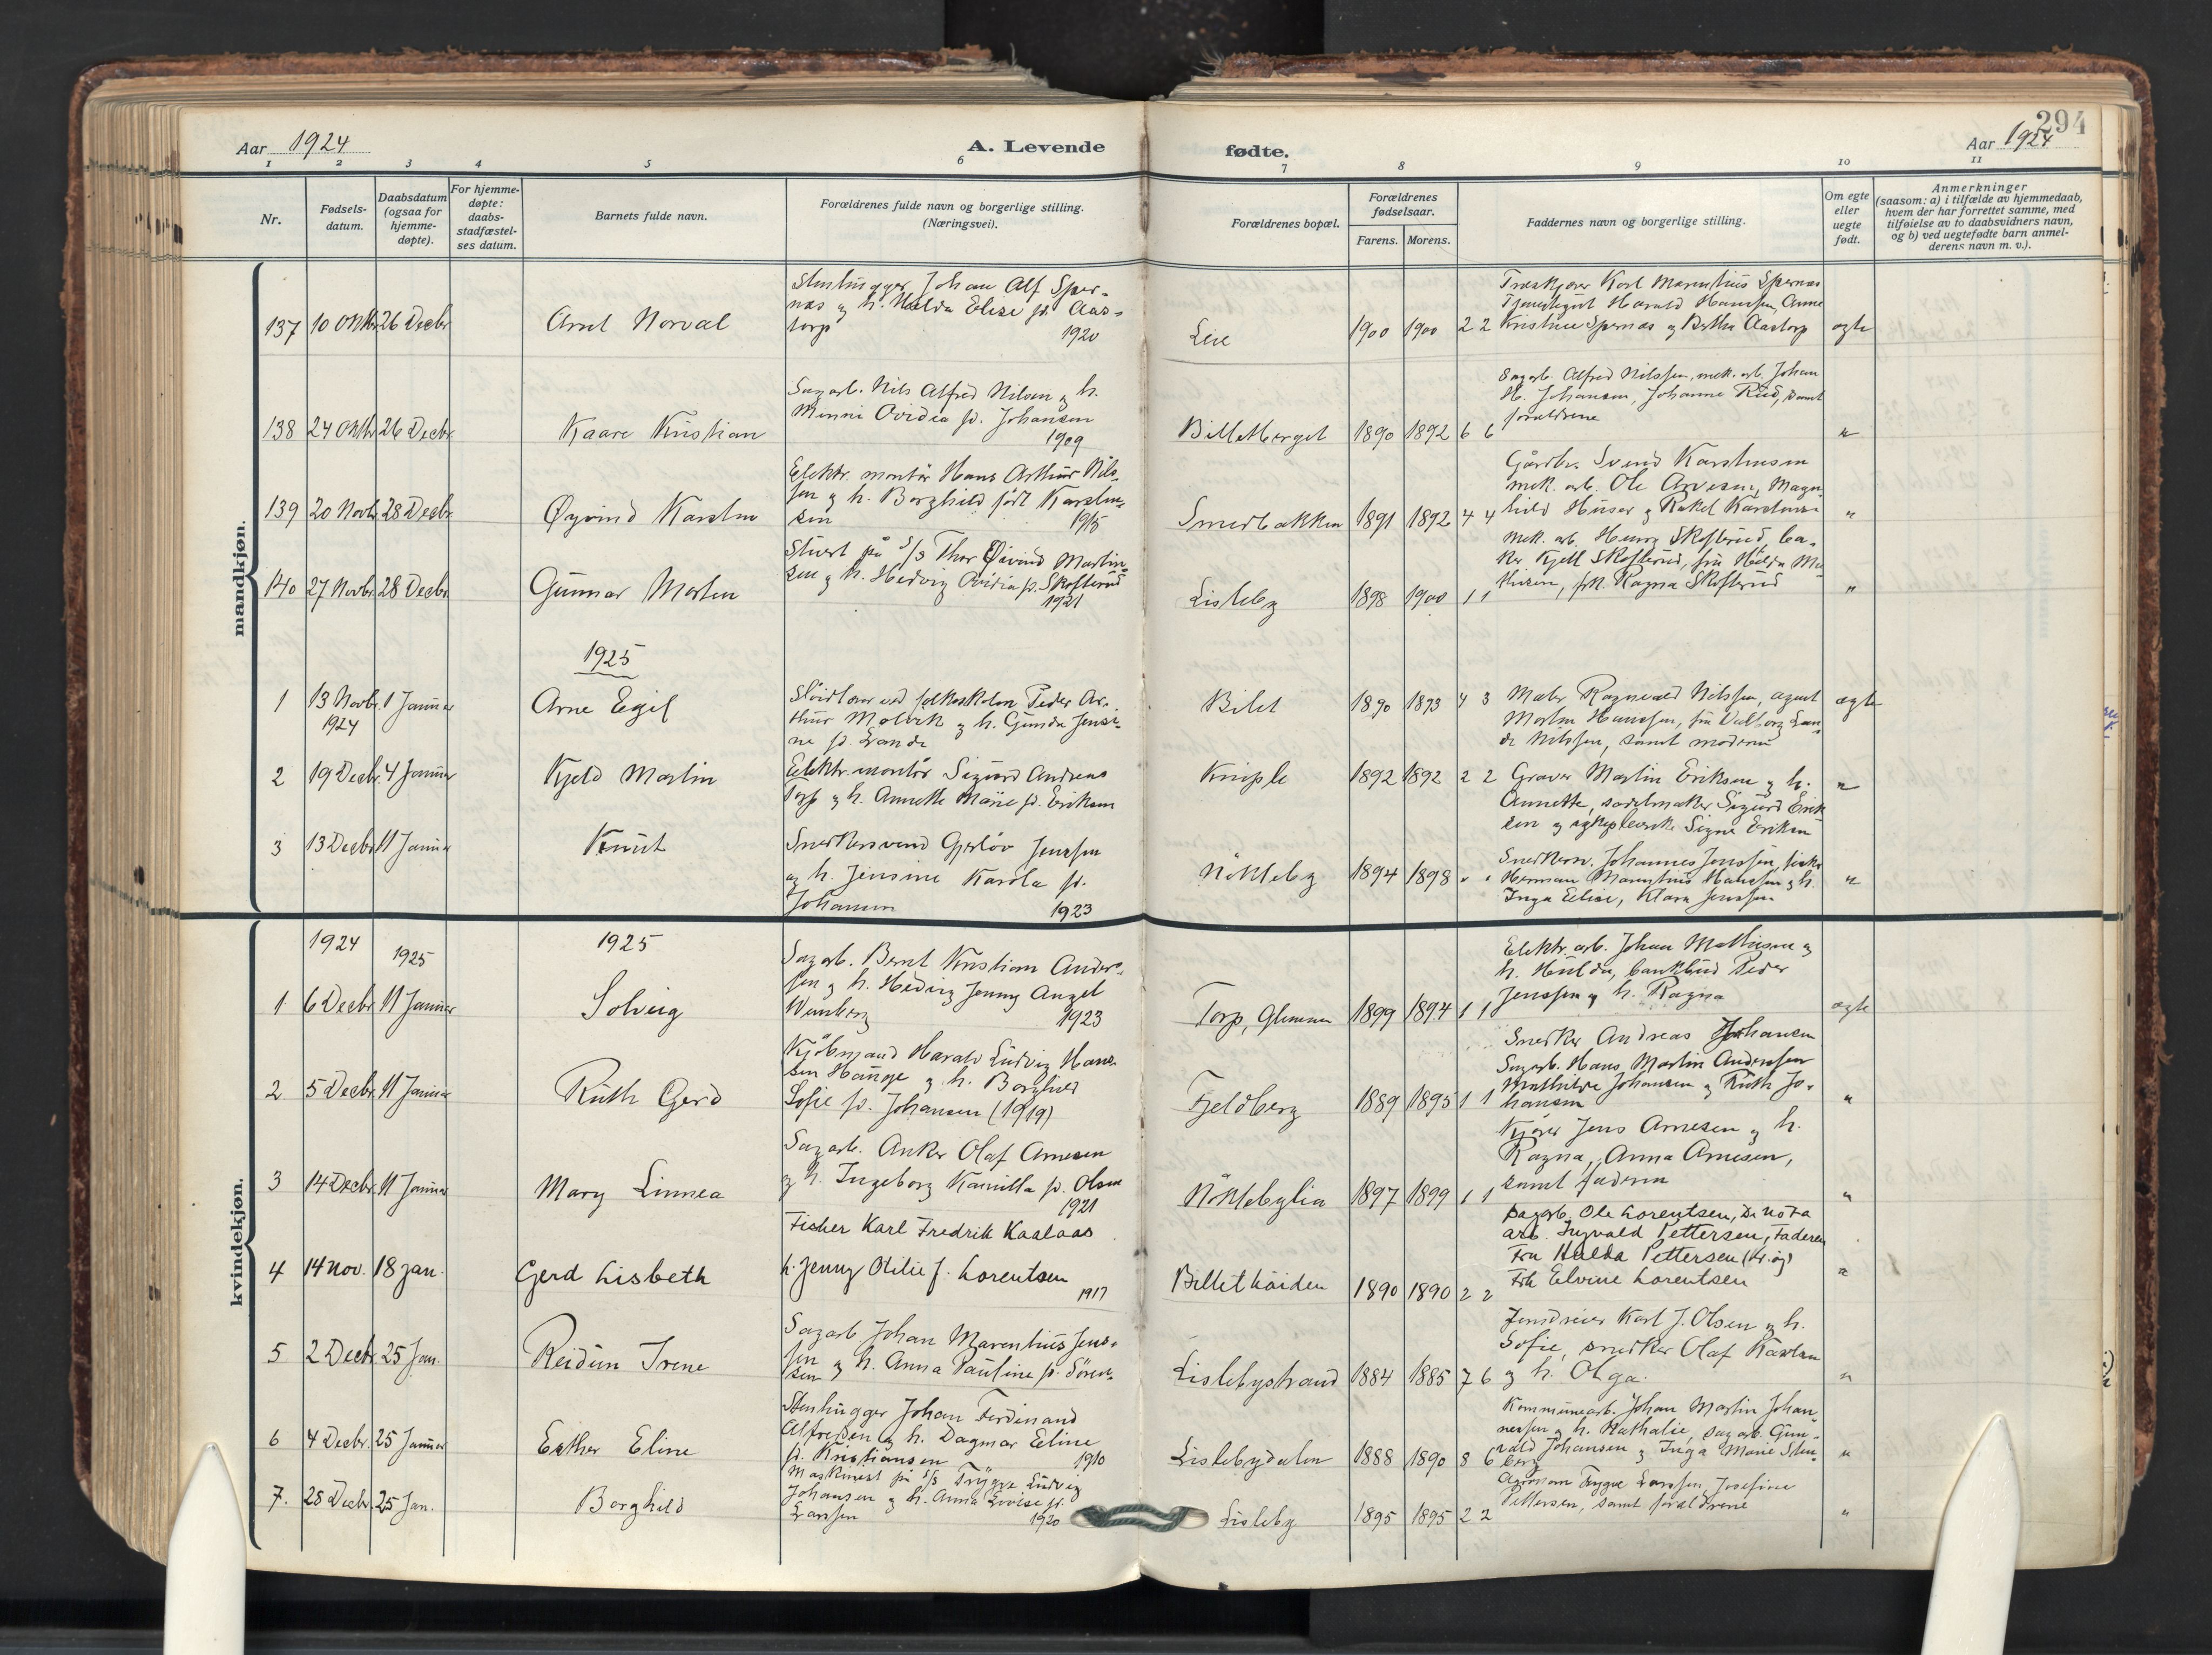 Aar 1924
A. Levende
fødte.
294
Aar 1924
1 2 3 4 5 6 7 8 9 10 11
Nr.
Fødsels-
datum.
Daabsdatum
(ogsaa for
hjemme-
døpte).
For hjemme-
døpte:
daabs-
stadfæstel-
ses datum.
Barnets fulde navn.
Forældrenes fulde navn og borgerlige stilling.
(Næringsvei).
Forældrenes bopæl.
Forældrenes
fødselsaar.
Farens. Morens.
Faddernes navn og borgerlige stilling.
Om egte
eller
uegte
født.
Anmerkninger
(saasom: a) i tilfælde av hjemmedaab,
hvem der har forrettet samme, med
tilføielse av to daabsvidners navn,
og b) ved uegtefødte barn anmel-
derens navn m. v.).
mandkjøn.
137 10 Oktbr 26 Decbr
Arnt Norval
Stenhugger Johan Alf Sper-
næs og h. Hulda Elise f. Aas-
torp
1920
Lie
1900 1900 2 2
Karl Marenthius Spernæs
Harald Hanssen, Anne
Kristine Spernæs og Bertha Aastorp
egte
138 24 Oktbr 26 Decbr
Kaare Kristian
Sagarb. Nils Alfred Nilsen og h.
Minni Ovidia f. Johansen
1909
Billetberget
1890 1892 6 6
Sagarb. Alfred Nilssen, mek. arb. Johan
H. Johansen, Johanne Rud, samt
forældrene
"
139 20 Novbr 28 Decbr
Øyvind Karsten
Elektr. montør Hans Arthur Nils-
sen og h. Borghild født Karsten-
sen
1915
Smedbakken
1891 1892 4 4
Gårdbr. Svend Karstensen
mek. arb. Ole Arvesen, Magn-
hild Huser og Rakel Karstensen
"
140 27 Novbr 28 Decbr
Gunnar Morten
Stuert på S/S Thor Øivind Martin-
sen og h. Hedvig Ovidia f. Skofterud
1921
Lisleby
1898 1900 1 1
Mek. arb. Henry Skofterud, ba-
ker Kjell Skofterud, fru Hulda Ma-
thisen, frk. Ragna Skofterud
"
1925
1 13 Novbr 1 Januar
1924
Arne Egil
Sløidlærer ved folkeskolen Peder Ar-
thur Molvik og h. Gunda Jensi-
ne f. Lande
Bilet
1890 1893 4 3
Maler Ragnvald Nilssen, agent
Morten Hanssen, fru Valborg Lan-
de Nilssen, samt moderen
egte
2 19 Decbr 4 Januar
Kjeld Martin
Elektr. montør Sigurd Andreas
Torp og h. Annette Marie f. Eriksen
Kniple
1892 1892 2 2
Graver Martin Eriksen og h.
Annette, sadelmaker Sigurd Erik-
sen og sykepleierske Signe Eriksen
"
3 13 Decbr 11 Januar
Knut
Snedkersvend Gerløv Jenssen
og h. Jensine Karola f.
Johansen 1923
Nøkleby
1894 1898
Snedkersv. Johannes Jenssen, fisker
Herman Marentius Hanssen og h.
Inga Elise, Klara Jenssen
"
kvindekjøn.
1924 1925 1925
1 6 Decbr 11 Januar
Solveig
Sagarb. Bernt Kristian Anders-
sen og h. Hedvig Jenny Angel
Wernberg
1923
Torp, Glemmen
1899 1894 1 1
Elektr. arb. Johan Mathisen og
h. Hulda, bankbud Peder
Jenssen og h. Ragna
egte
2 5 Decbr 11 Januar
Ruth Gerd
Kjøbmand Harald Ludvig Han-
sen Hauge og h. Borghild
Sofie f. Johansen (1919)
Fjeldberg
1889 1895 1 1
Snedker Andreas Johansen
Sagarb. Hans Martin Anderssen
Mathilde Johansen og Ruth Jo-
hansen
"
3 14 Decbr 11 Januar
Mary Linnea
Sagarb. Anker Olaf Arnesen
og h. Ingeborg Kamilla f. Olsen
1921
Nøklebylia
1897 1899 1 1
Kjører Jens Arnesen og h.
Ragna, Anna Arnesen,
samt faderen
"
4 14 nov. 18 jan.
Gerd Lisbeth
Fisker Karl Fredrik Kaalaas
h. Jenny Otilie f. Lorentsen
1917
Billethöiden
1890 1890 2 2
Sagarb. Ole Lorentsen,
arb. Ingvald Pettersen, Faderen
Fru Hulda Pettersen
Frk Elvine Lorentsen
"
5 2 Decbr 25 Jan.
Reidun Irene
Sagarb. Johan Marenthius Jens-
sen og h. Anna Pauline f. Sören-
sen
Lislebystrand
1884 1885 7 6
Karl J. Olsen og h.
Sofie, snedker Olaf Karlsen
og h. Olga.
"
6 4 Decbr. 25 Januar
Esther Eline
Stenhugger Johan Ferdinand
Alfredsen og h. Dagmar Eline
f. Kristiansen 1910
Lislebydalen
1888 1890 8 6
Kommunearb. Johan Martin Johan-
nessen og h. Nathalie, sagarb. Gun-
vald Johansen og Inga Marie Sten-
berg
"
7. 28 Decbr. 25 Jan.
Borghild
Maskinist på S/S Trygve Ludvig
Johansen og h. Anna Lovise f.
Larssen 1920
Lisleby
1895 1895 2 2
Agronom Trygve Larssen, Josefine
Pettersen, samt forældrene
"